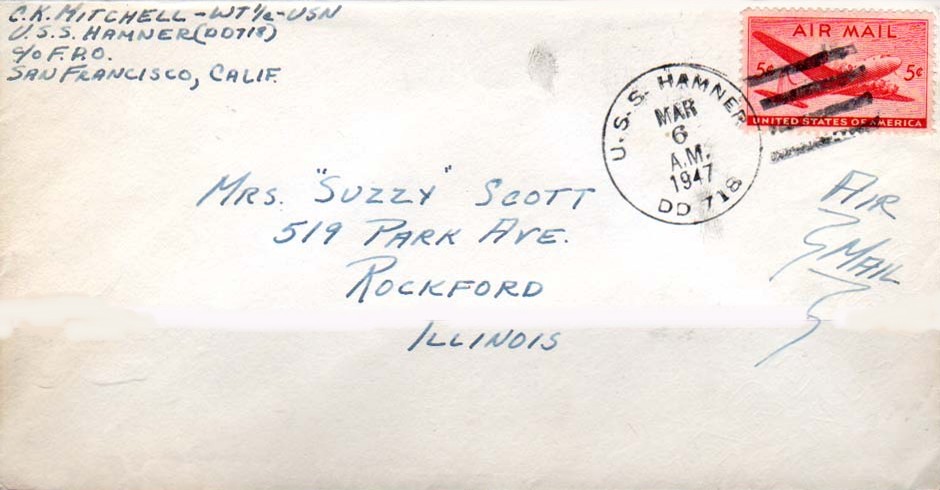 C.K. MITCHELL - WT 1/c - USN
U.S.S. HAMNER (DD718)
c/o F.P.O.
SAN FRANCISCO, CALIF.
U.S.S. HAMNER
MAR
6
A.M.
1947
DD 718
AIR MAIL
5¢ 5¢
UNITED STATES OF AMERICA
MRS. "SUZZY" SCOTT
519 PARK AVE.
ROCKFORD
ILLINOIS
AIR
MAIL